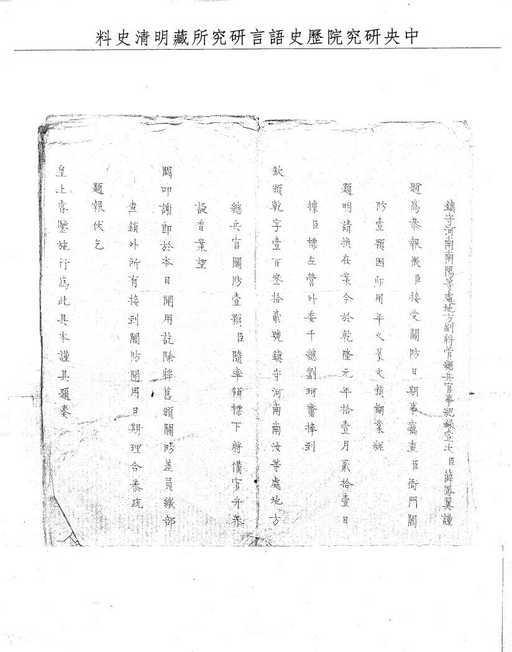 中央研究院歷史語言研究所藏明清史料
鎮守河南南陽等處地方副將管總兵官事紀錄壹次臣薛翼謹
題為恭報微臣接受關防日期事竊查臣衙門關
防壹顆因印用年久篆文模糊業經
題明請換在案今於乾隆元年拾壹月貳拾壹日
據臣標左營外委千總劉珂齎捧到
欽頒乾字壹百叁拾貳號鎮守河南南汝等處地方
總兵官關防壹顆臣隨率領標下將備官弁恭
設香案望
闕叩謝即於本日開用訖除將舊頒關防差員繳部
查銷外所有接到關防開用日期理合恭疏
題報伏乞
皇上睿鑒施行為此具本謹具題奏